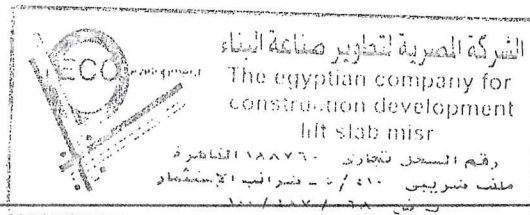 ECO
الشركة المصرية لتطوير صناعة البناء
The egyptian company for
construction development
lift slab misr
رقم السجل تجارى ١٨٨٧٦٠ القاهرة
ملف ضريبى ٤١٠ / ٥ - ضرائب الإستثمار